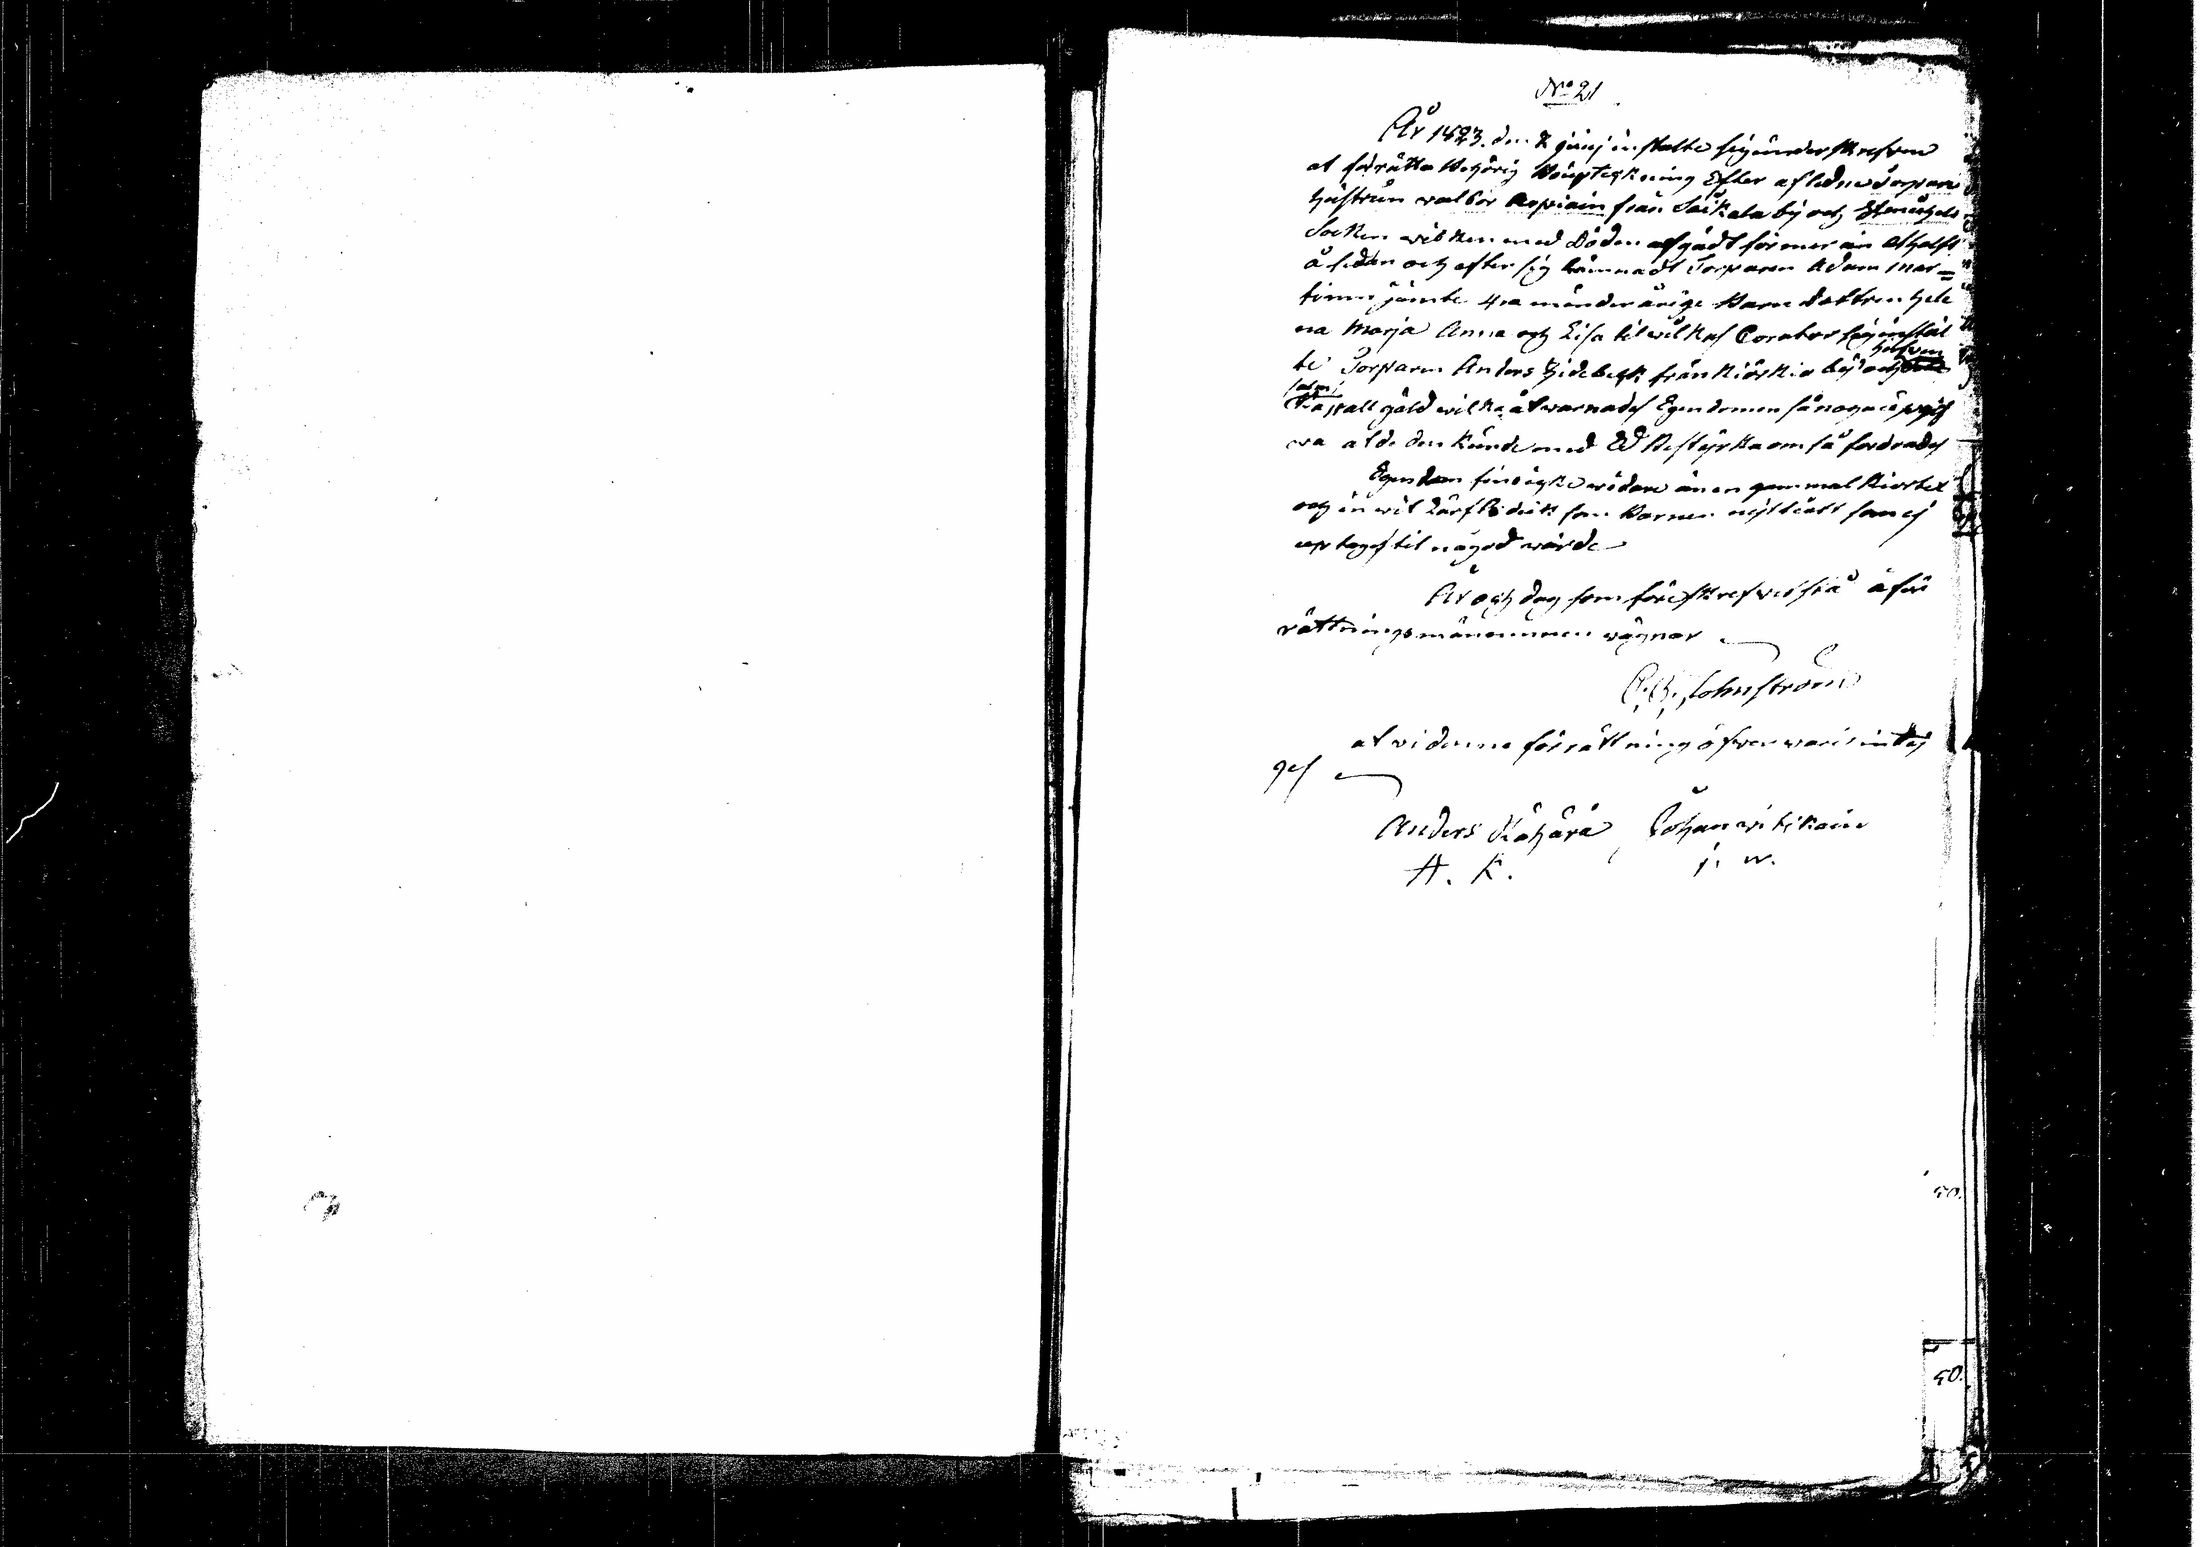 No 21
År 1823. den 7 junij instalte sig underskrefven
at förrätta Behörig Bouptekning Efter afledne Torpare
hustrun walbor Repiain från Saikala bÿ och
Socken vilken med Döden afgådt för mer än et halft
å sedan och efter sig lämnadt Torparen Adam mar=
tinen jämte 4ra minderårige Barn dottren hele
na Marja Anna och Lisa til vilkas Corator sig instäl
te Torparen Anders Hidebeck från Kiörkio bÿ och
Kapall gäld vilka åtvarnades Egendomen så noga upgif
va at de den kunde med Ed Bestÿrka om så fordrades
Egendom fins icke vidare än en gammal Kiortel
och en vit Lärfts duk som Barnen nÿttiatt som ej
uptages til någod värde
År och dag som förr skrefvit stå å för
rättningsmänennen vägnar
C. G. Lohnström
at vi denne förrättning öfver varit intÿ
ges
Anders Kähärä Johan vitikain
A. K. j. w.
50.
50.